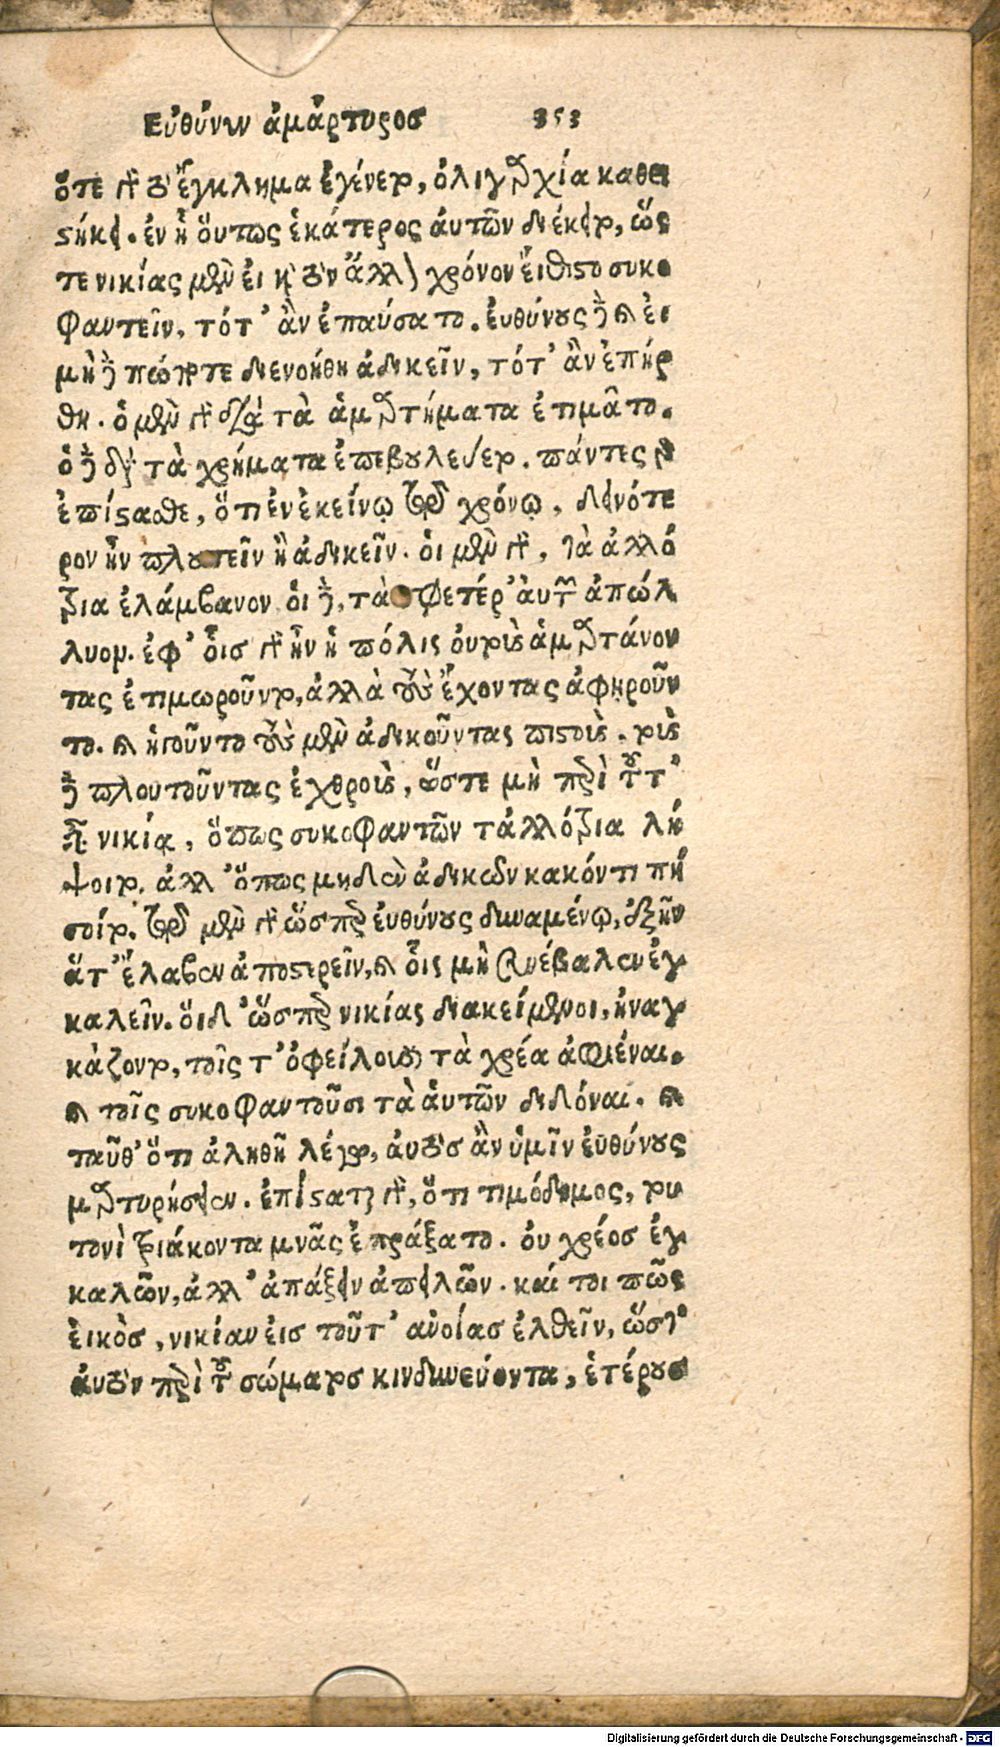 Εὐθύνω ἀμάρτυρος 353
ὅτε γὰρ τὸ ἔγκλημα ἐγένετο, ὀλιγαρχία καθει
στήκει. ἐν ᾗ οὕτως ἑκάτερος αὐτῶν διέκειτο, ὥς
τε νικίας μὲν εἰ καὶ τὸν ἄλλον χρόνον εἴθιστο συκο
φαντεῖν, τότ' ἂν ἐπαύσατο. ἐυθύνους δὲ καὶ ἐι
μὴ δὲ πώποτε διενοήθη ἀδικεῖν, τότ' ἂν ἐπήρ
θη. ὁ μὲν γὰρ διὰ τὰ ἁμαρτήματα ἐτιμᾶτο.
ὁ δὲ διὰ τὰ χρήματα ἐπεβουλεύετο. πάντες γὰρ
ἐπίστασθε, ὅτι ἐν ἐκείνῳ τῷ χρόνῳ, δεινότε
ρον ἦν πλουτεῖν ἢ ἀδικεῖν. ὁι μὲν γὰρ, τὰ ἀλλό
τρια ἐλάμβανον ὁι δὲ, τὰ σφετέρ' ἀυτῶν ἀπώλ
λυον. ἐφ' οἷσ γὰρ ἦν ἡ πόλις ὀυ τοὺς ἁμαρτάνον
τας ἐτιμωροῦντο, ἀλλὰ τοὺς ἔχοντας ἀφῃροῦν
το. καὶ ἡγοῦντο τοὺς μὲν ἀδικοῦντας πιστοὺς. τοὺς
δὲ πλουτοῦντας ἐχθροὺς, ὥστε μὴ περὶ τοῦτ'
ἦν νικίᾳ, ὅπως συκοφαντῶν τἀλλότρια λή
ψοιτο. ἀλλ' ὅπως μηδὲν ἀδικῶν κακόν τι πή
σοιτο. τῷ μὲν γὰρ ὥσπερ ἐυθύνους δυναμένῳ, ἐξῆν
ἅτ' ἔλαβεν ἀποστερεῖν, καὶ οἷς μὴ συνέβαλεν ἐγ
καλεῖν. ὅι δ' ὥσπερ νικίας διακείμενοι, ἠναγ
κάζοντο, τοῖς τ' ὀφείλουσι τὰ χρέα ἀφιέναι.
καὶ τοῖς συκοφαντοῦσι τὰ ἁυτῶν διδόναι. καὶ
ταῦθ' ὅτι ἀληθῆ λέγω, ἀυτὸσ ἂν ὑμῖν ἐυθύνους
μαρτυρήσειεν. ἐπίσταται γὰρ, ὅτι τιμόδημος, του
τονὶ τριάκοντα μνᾶς ἐπράξατο. ὀυ χρέοσ ἐγ
καλῶν, ἀλλ' ἀπάξειν ἀπειλῶν. καί τοι πῶς
ἐικὸσ, νικίαν ἐισ τοῦτ' ἀνοίας ἐλθεῖν, ὥστ'
ἀυτὸν περὶ τοῦ σώματοσ κινδυνεύοντα, ἑτέρουσ
Digitalisierung gefördert durch die Deutsche Forschungsgemeinschaft - DFG